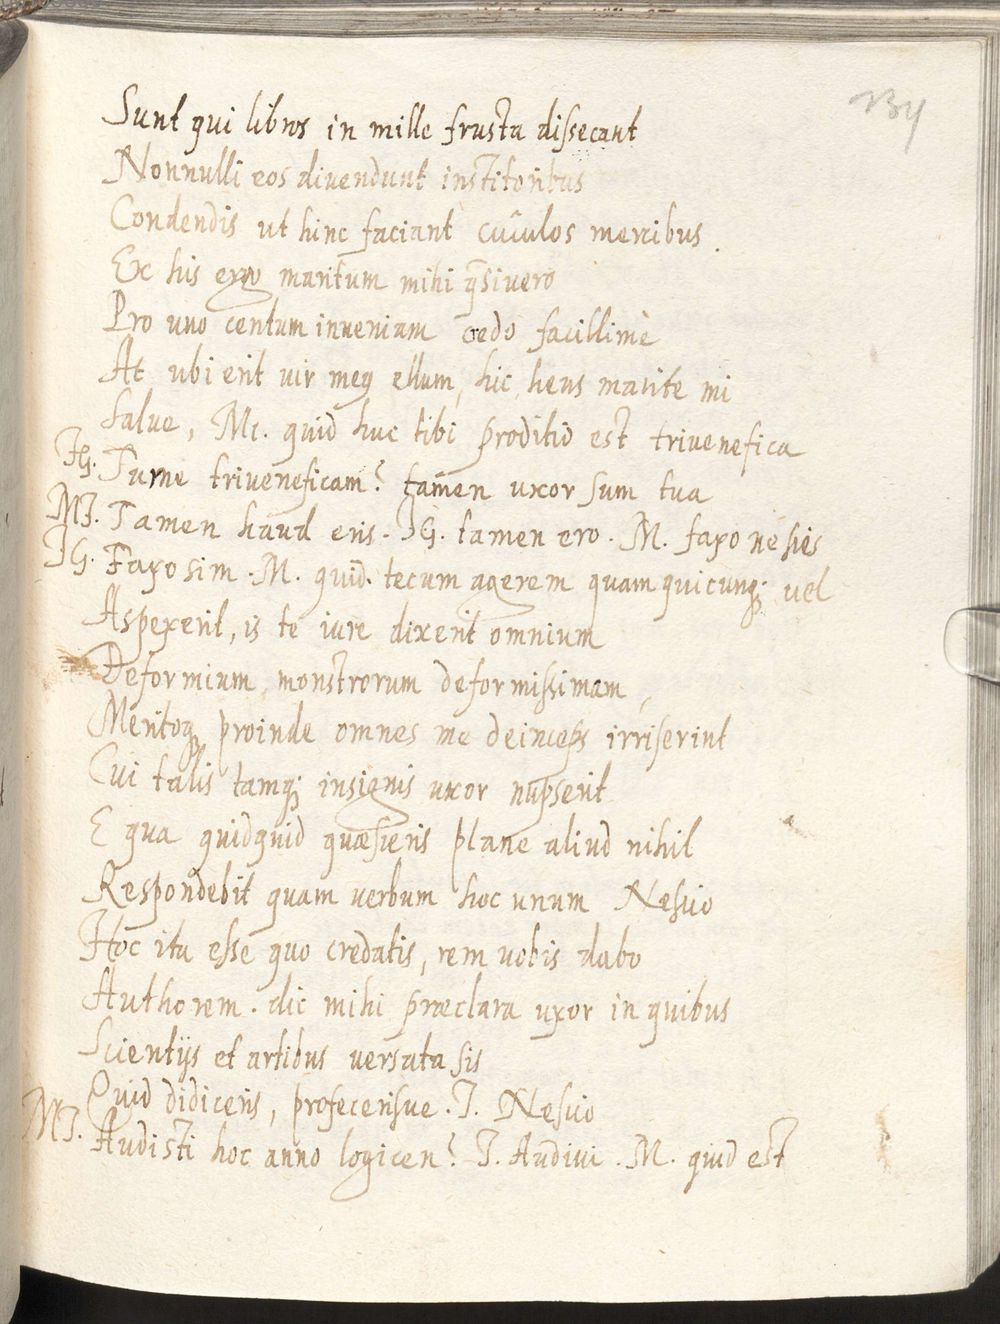 134
Sunt qui libros in mille frusta dissecant
Nonnulli eos divendunt institoribus
Condendis ut hinc faciant cucullos mercibus.
Ex his ergo maritum mihi q̄sivero
Pro uno centum inveniam credo facillimè
At ubi erit vir meq ellum, hic, heus marite mi
Salve, Mi. quid huc tibi proditio est trivenefica
IG. Turne triveneficam? tamen uxor sum tua
MI. Tamen haud eris. IG. tamen ero. M. faxo ne sies
IG. Faxo sim. M. quid. tecum agerem quam quicunq; vel
Aspexerit, is te iure dixerit omnium
Deformium, monstrorum deformissimam,
Meritoq; proinde omnes me deinceps irriserint
Cui talis tamq; insignis uxor nupserit
E qua quidquid quæsieris plane aliud nihil
Respondebit quam verbum hoc unum Nescio
Hoc ita esse quo credatis, rem vobis dabo
Authorem. dic mihi præclara uxor in quibus
Scientijs et artibus versata sis
Quid didiceris, profecerisve. I. Nescio
MI. Audisti hoc anno logicen? I. Audivi. M. quid est